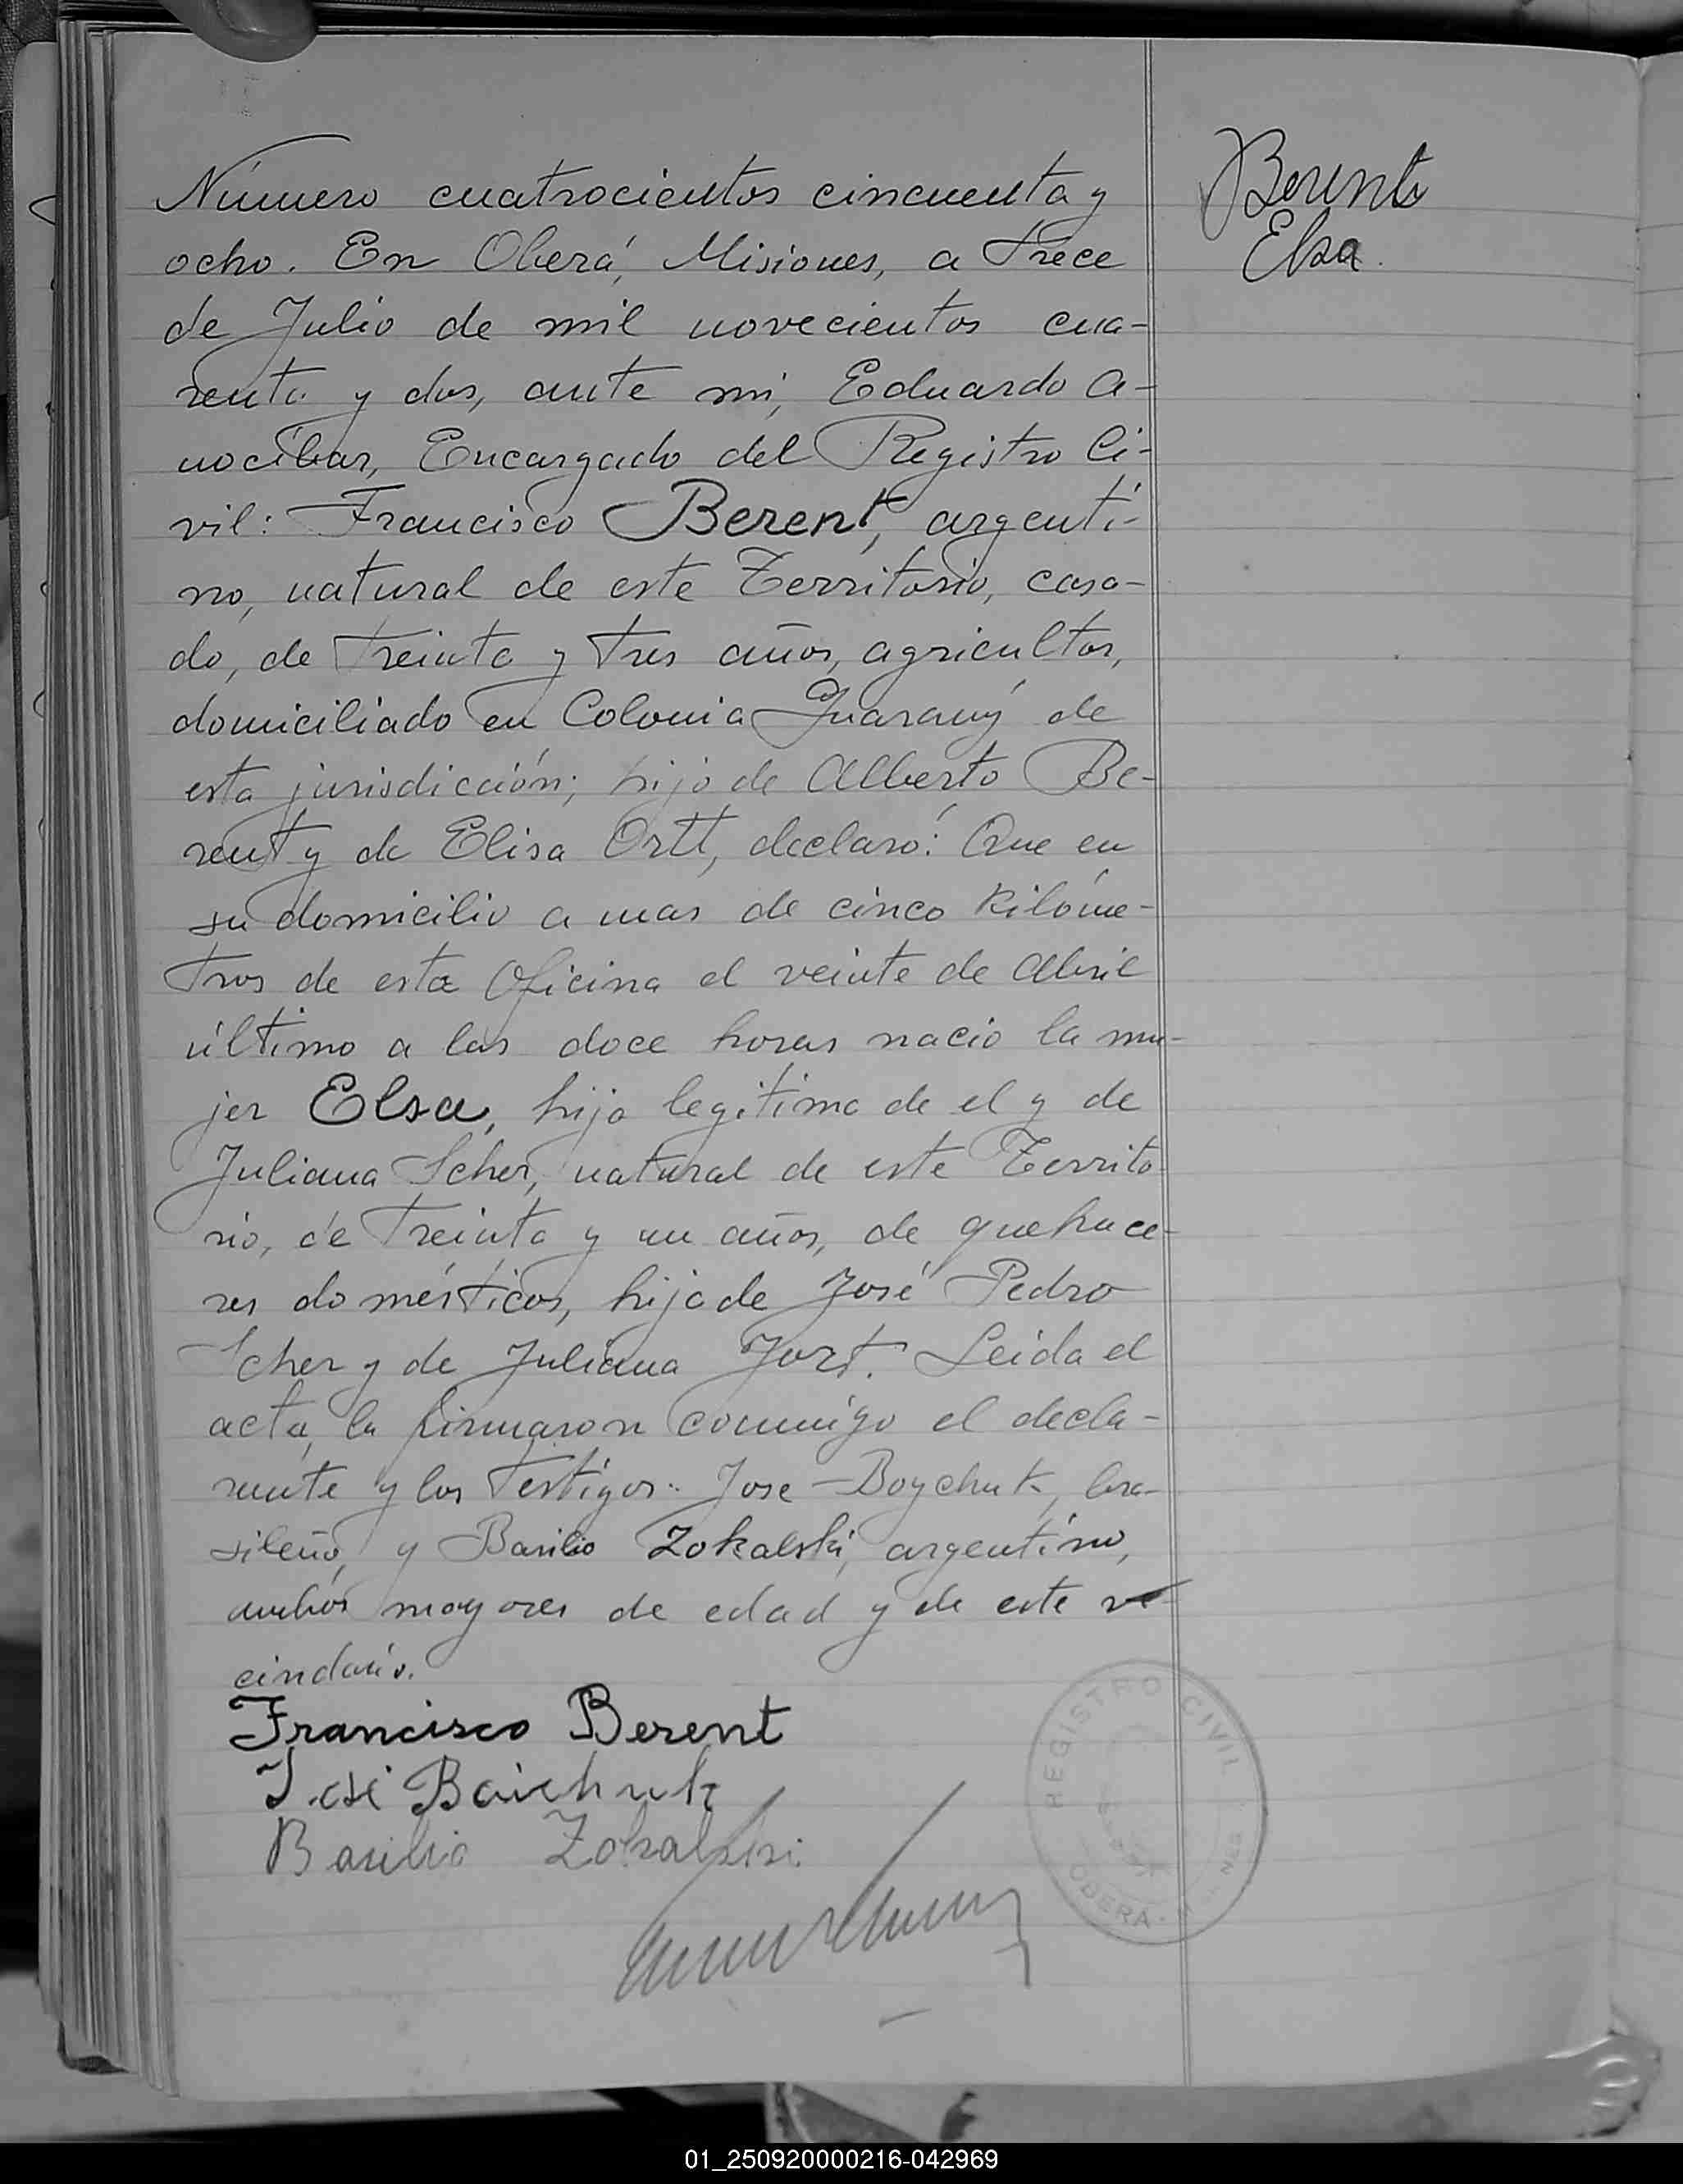 Número cuatrocientos cincuenta y
ocho. En Oberá, Misiones, a trece
de Julio de mil novecientos cua-
renta y dos, ante mí, Eduardo A-
nocíbar, Encargado del Registro Ci-
vil: Francisco Berent, argenti-
no, natural de este Territorio, casa-
do, de treinta y tres años, agricultor,
domiciliado en Colonia Guaraný de
esta jurisdicción; hijo de Alberto Be-
rent y de Elisa Ortt, declaró: Que en
su domicilio a mas de cinco kilóme-
tros de esta Oficina el veinte de Abril
último a las doce horas nació la mu-
jer Elsa, hija legítima de el y de
Juliana Scher, natural de este Territo
rio, de treinta y un años, de quehace-
res domésticos, hija de José Pedro
Scher y de Juliana Jort. Leida el
acta, la firmaron conmigo el decla-
rante y los testigos: Jose Boychuk, bra-
sileño, y Basilio Zokalski, argentino,
ambos mayores de edad y de este ve
cindario.
Francisco Berent
José Boichuk
Basilio Zokalski
Berent
Elsa.
REGISTRO CIVIL
OBERÁ
01_250920000216-042969